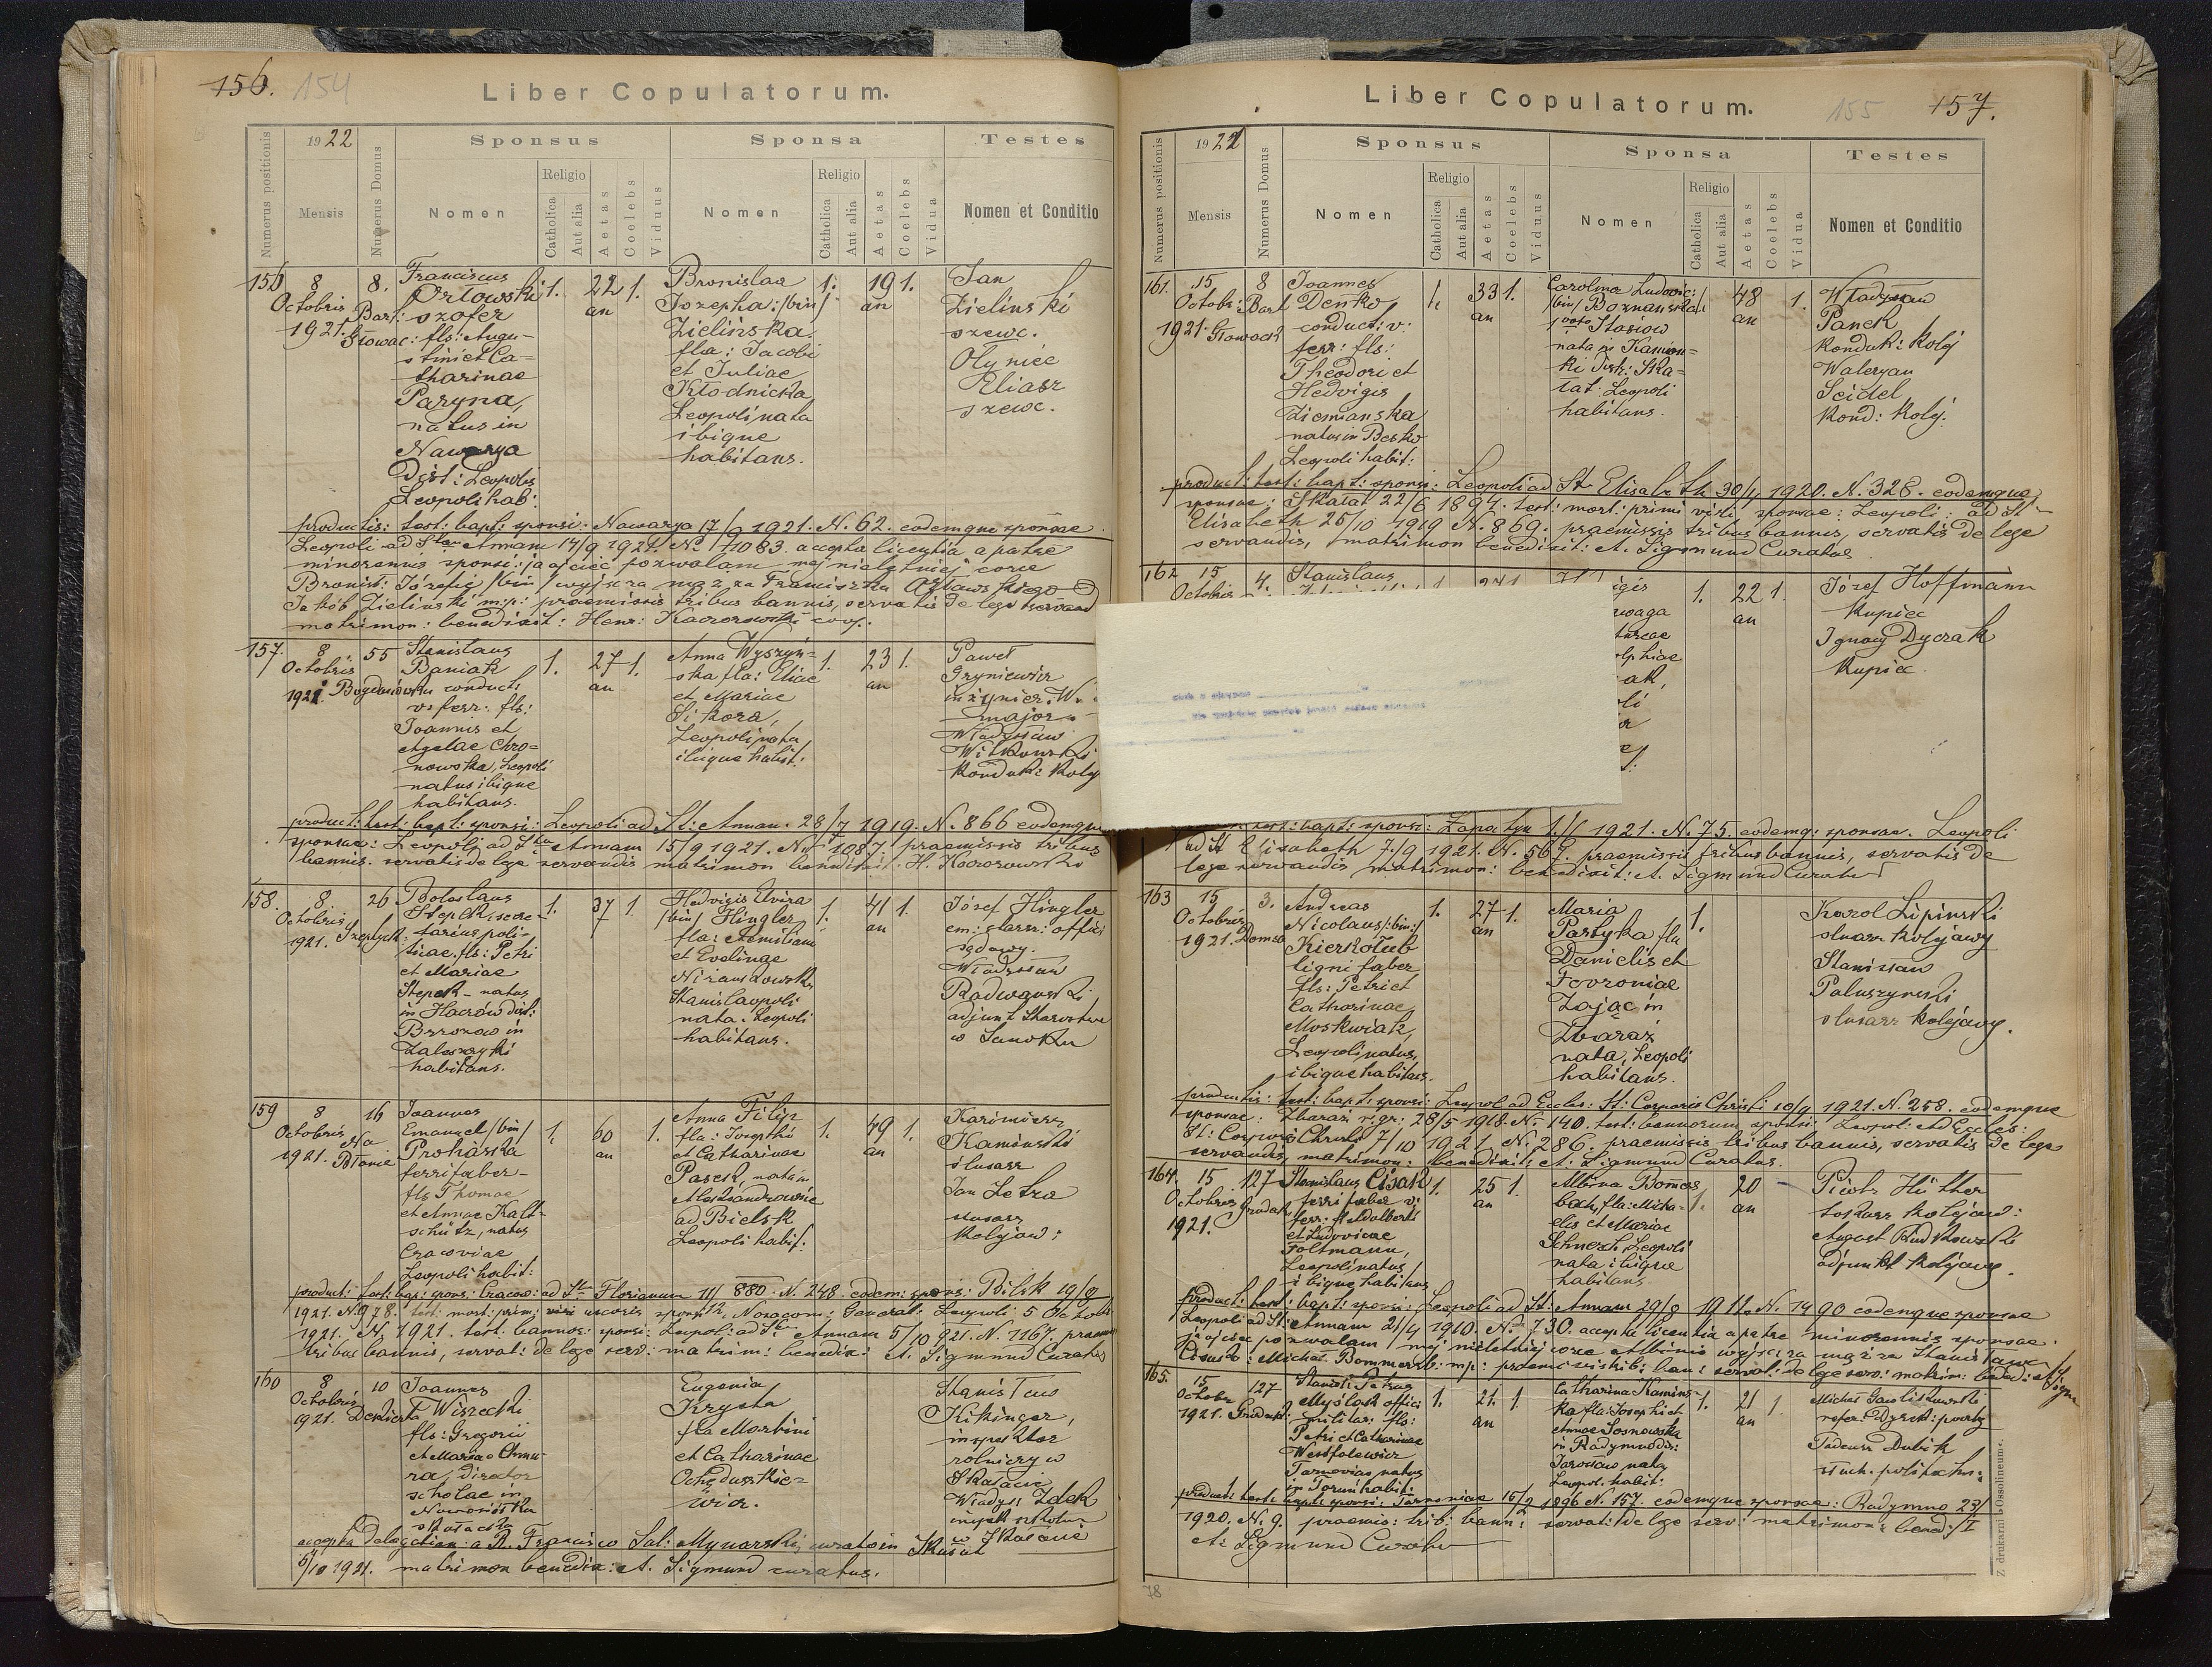 156. 154
Liber Copulatorum.
Numerus positionis
1922
Mensis
Numerus Domus
Sponsus
Nomen
Religio
Catholica
Aut alia
Aetas
Coelebs
Viduus
Sponsa
Nomen
Religio
Catholica
Aut alia
Aetas
Coelebs
Vidua
Testes
Nomen et Conditio
156 8 8. Franciscus 1. 22 1. Bronislaa 1. 19 1. Jan
Octobris Bart: Orłowski an Josepha /bin/ an Zielinski
1921. Głowac: szofer Zielinska szewc.
fls: Augu-
stini et Ca-
tharinae
Paryna,
natus in
Nawarya
Dist: Leopolis
Leopoli hab:
fla: Jacobi
et Juliae
Kłodnicka
Leopoli nata
ibique
habitans.
Olyniec
Eliasz
szewc.
productis: test: bapt: sponsi: Nawarya 17/9 1921. N. 62. eodemque sponsae
Leopoli ad Stam Annam 14/9 1921. No 1083. accepta licentia a patre
minorennis sponsi: ja ojciec pozwalam mej nieletniej córce
Bronisł: Józefie /bin/ wyjść za mąż za Franciszka Orłowskiego
Jakób Zielinski mp: praemissis tribus bannis, servatis de lege servand
matrimon: benedixit: Henr: Kaczorowski coop.
157. 8 55 Stanislaus 1. 27 1. Anna Wyszyń- 1. 23 1. Paweł
Octobris Baniak an ska fla: Eliae an Gryniewicz
1921. Bogdanówka conduct: et Mariae inżynier.
v: ferr: fls: Sikora, major
Joannis et Leopoli nata Władysław
Agatae Chro- ibique habit: Witkowski
nowska, Leopoli konduk: kolej
natus ibique
habitans.
product: test: bapt: sponsi: Leopoli ad St: Annam. 28/7 1919. N. 866 eodemque
sponsae: Leopoli ad Stam Annam 15/9 1921. No 1087. praemissis tribus
bannis. servatis de lege servandis matrimon benedixit: H. Kaczorowski
158. 8. 26 Boleslaus 1. 37 1. Hedvigis Elvira 1. 41 1. Józef Hingler
Octobris Stepek, secre- /bin/ Hingler an em: starsz: offic:
1921. Szeptyck: tarius poli- fla: Aemiliani sądowy.
tiae. fls: Petri et Evelinae Władysław
et Mariae Radwański
Stepek - natus Stanislaopoli adjunkt Starostwa
nata. Leopoli w Sanoku
habitans.
Brzozow in
Zaleszczyki
habitans.
159 8 16 Joannes 1. 60 1. Anna Filip 1. 49 1. Kazimierz
Octobris Na Emanuel /bin/ an fla: Josephi an Kaminski
1921. Błonie Prohaska et Catharinae ślusarz
ferri faber - Pasek, nata in Jan Letra
fls Thomae Aleksandrowice ślusarz
et Annae Kalt- ad Bielsk kolejow:
schütz, natus Leopoli habit:
Cracoviae
Leopoli habit:
product: test: bap: spons: Cracov: ad Stum Florianum 11/ 880. N. 248. eodem: spons: Bilsk 19/9
1921. N. 978. test: mort: prim: uxoris sponsi Nosocom: General: Leopoli: 5 Octobr
1921. N. 1921. test. bannor: sponsi: Leopoli: ad Stam Annam 5/10 921. N. 1167. praem
tribus bannis, servat: de lege serv: matrim: benedix: A. Sigmund Curatus
160 8 10 Joannes Eugenia Stanisław
Octobris Wiszecki Krysta Kikinger,
1921. fls: Gregorii fla Martini inspektor
et Mariae et Catharinae rolniczy w
director Skałacie
scholae in Władysł: Zdek
accepta Delegation: a R. Francisco Sal: Mynarski, curato in Skałat
5/10 1921. matrimon benedix: A. Sigmund curatus.
Liber Copulatorum. 155 157.
Numerus positionis
1921
Mensis
Numerus Domus
Sponsus
Nomen
Religio
Catholica
Aut alia
Aetas
Coelebs
Viduus
Sponsa
Nomen
Religio
Catholica
Aut alia
Aetas
Coelebs
Vidua
Testes
Nomen et Conditio
161. 15 8 Joannes 1. 33 1. Carolina Ludovic: 48 1. Władysław
Octobr: Bart Denko an /bin/ Boznanska an Panek
1921. Głowack conduct: v: 1 voto Stasiow konduk: kolej
ferr: fls: nata in Kamion- Waleryan
Theodori et ki Distr: Ska- Seidel
Hedvigis łat. Leopoli kond: kolej.
Ziemianska habitans.
natus in Besko
Leopoli habit:
product: test: bapt: sponsi: Leopoli ad St Elisabeth 30/4 1920. N. 328. eodemque
sponsae: Skałat 22/6 1894. test: mort: primi viri sponsae: Leopoli: ad St
Elisabeth 25/10 1919 N. 869. praemissis tribus bannis, servatis de lege
servandis, matrimon benedixit: A. Sigmund Curatus
162 15 4. Stanislaus 1. 22 1. Józef Hoffmann
Octobris an Kupiec
Ignacy Dyczak
Kupiec
test: bapt: sponsi: Zapałyn 1921. N. 75. eodemq: sponsae. Leopoli
ad St Elisabeth 7/9 1921. N. 567. praemissis tribus bannis, servatis de
lege servandis matrimon: benedixit: A. Sigmund Curatus
163 15 3. Andreas 1. 27 1. Maria 1. Karol Lipinski
Octobris Nicolaus /bin/ an Partyka fla ślusarz kolejowy
1921. Domsa Kierkołub Danielis et Stanisław
ligni faber Fevroniae Paluszynski
fls: Petri et Zając in ślusarz kolejowy.
Catharinae Zbaraż
Moskwiak, nata, Leopoli
Leopoli natus, habitans.
ibique habitans.
productis: test: bapt: sponsi: Leopol ad Eccles: St: Corporis Christi 10/9 1921. N. 258. eodemque
sponsae: Zbaraż r. gr: 28/5 1918. N. 140. test: bannorum sponsi Leopol: ad Eccles:
St: Corporis Christi 7/10 1921. N. 286. praemissis tribus bannis, servatis de lege
servandis, matrimon: benedixit: A. Sigmund Curatus.
164. 15 127 Stanislaus Cisak 1. 25 1. Albina Bomers 1. 20 - Piotr Hüther
Octobris Grodek ferri faber v: an bach, fla: Micha- an kolejow:
1921. ferr: fls Adalberti elis et Mariae August Rudkowski
et Ludovicae Schnerch, Leopoli adjunkt kolejowy.
Foltmann, nata ibique
Leopoli natus habitans
ibique habitans
product: test: bapt: sponsi: Leopoli ad St: Annam 29/9 1912. N. 1490 eodemque sponsae
Leopoli ad St: Annam 21/4 1910. No 730. accepta licentia a patre minorennis sponsae:
ja ojciec pozwalam mej nieletniej córce Albinie wyjść za mąż za Stanisława
Cisaka: Michał Bommersb: mp: praemissis trib: ban: servat: de lege serv: matrim: bened: A. Sigm
165. 15 127 Stanisl: Petrus 1. 21 1. Catharina Kamins- 1. 21 1
Octobr Myślak offici an ka fla: Josephi et an refer: Dyrek: poczty
1921. Grodek: militar: fls: Annae Sosnowska Tadeusz Dubik
Petri et Catharinae in Radymno dis: słuch. politechn:
Westfalewicz Jaroslaw nata,
Tarnoviae natus Leopol. habit:
in Toruń habit:
product: test: bapt: sponsi: Tarnoviae 15/2 1896 N. 157. eodemque sponsae: Radymno 23/
1920. N. 9. praemis: trib: bann: servat: de lege serv: matrimon: bened:
A: Sigmund Curatus
Z drukarni »Ossolineum«.
78